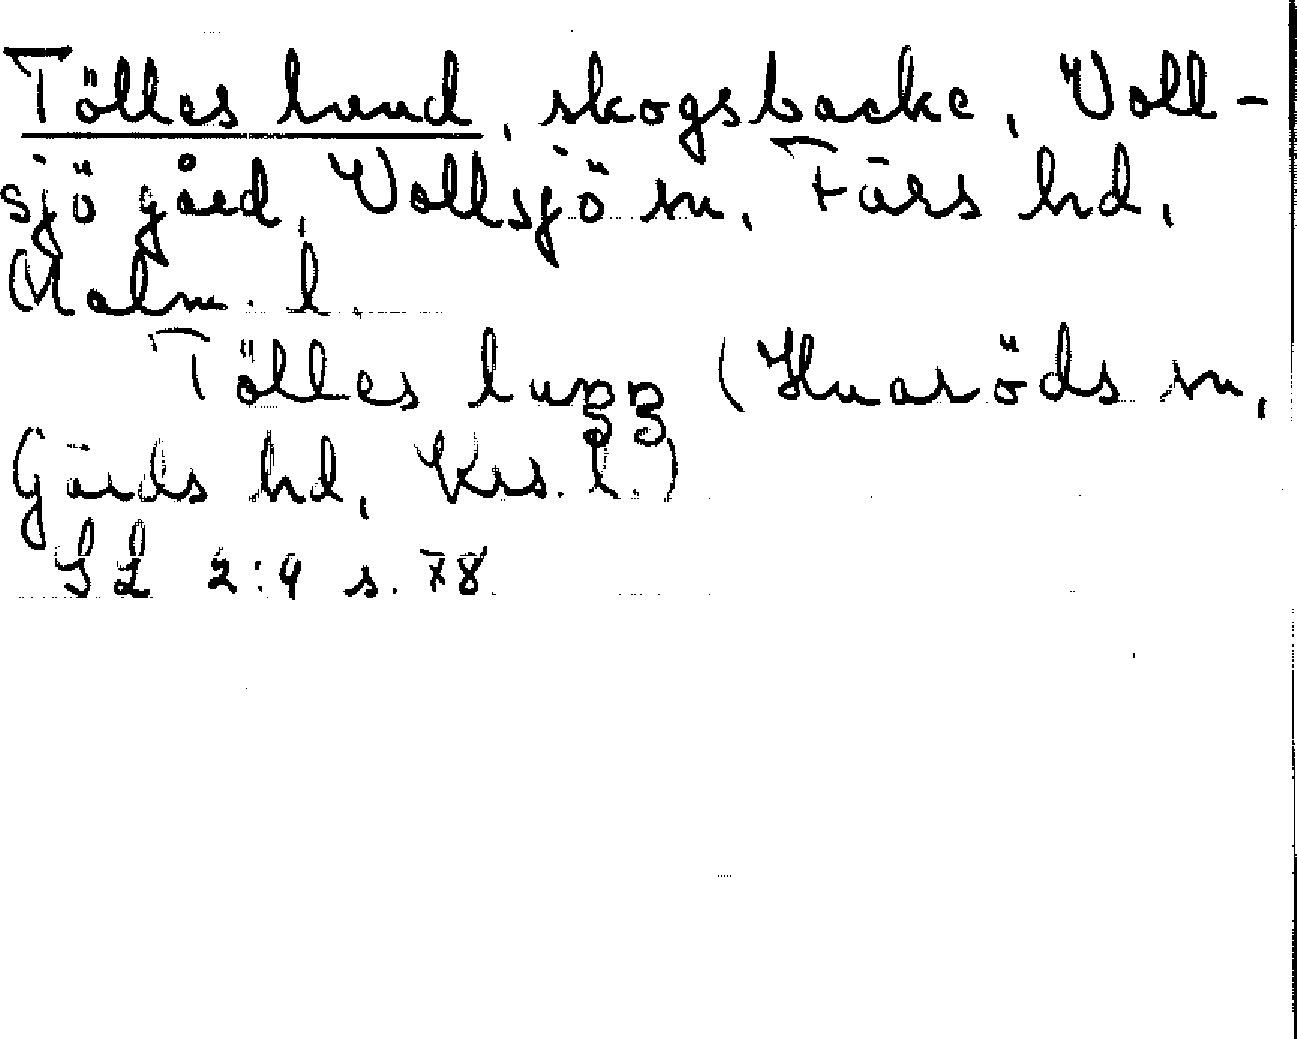 Tölles lund, skogsbacke, Voll-
sjö gård, Vollsjö sn, Färs hd,
Malm. l.
Tölles lugg (Huaröds sn,
Gärds hd, Krs. l.)
SL 2:4 s. 78